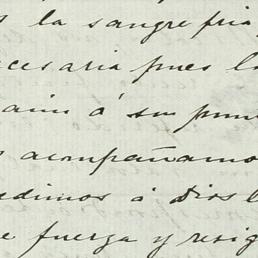 la sangre fria
cesaria pues l
á su pun
acompañamo
edimos á Dios l
e fuerza y resig